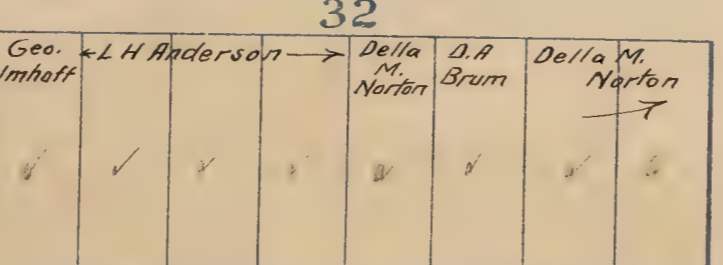 32
Geo.
Imhoff
L H Anderson
Della
M.
Norton
D.A
Brum
Della M.
Norton